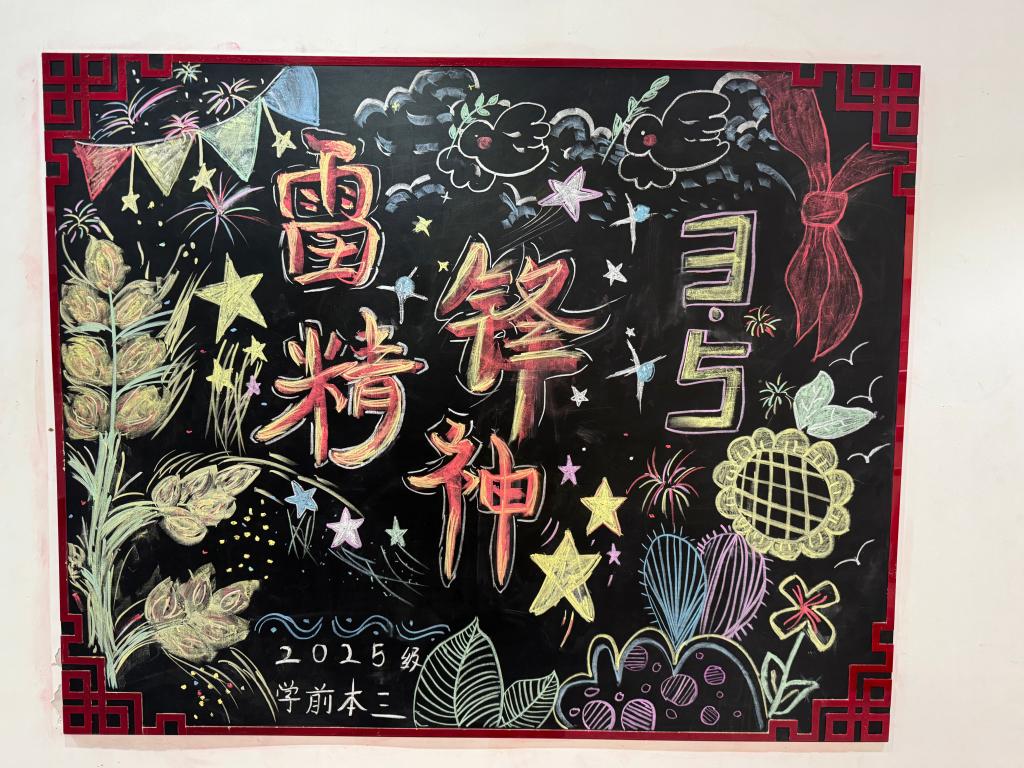 雷锋
精神
3.5
2025级
学前本三